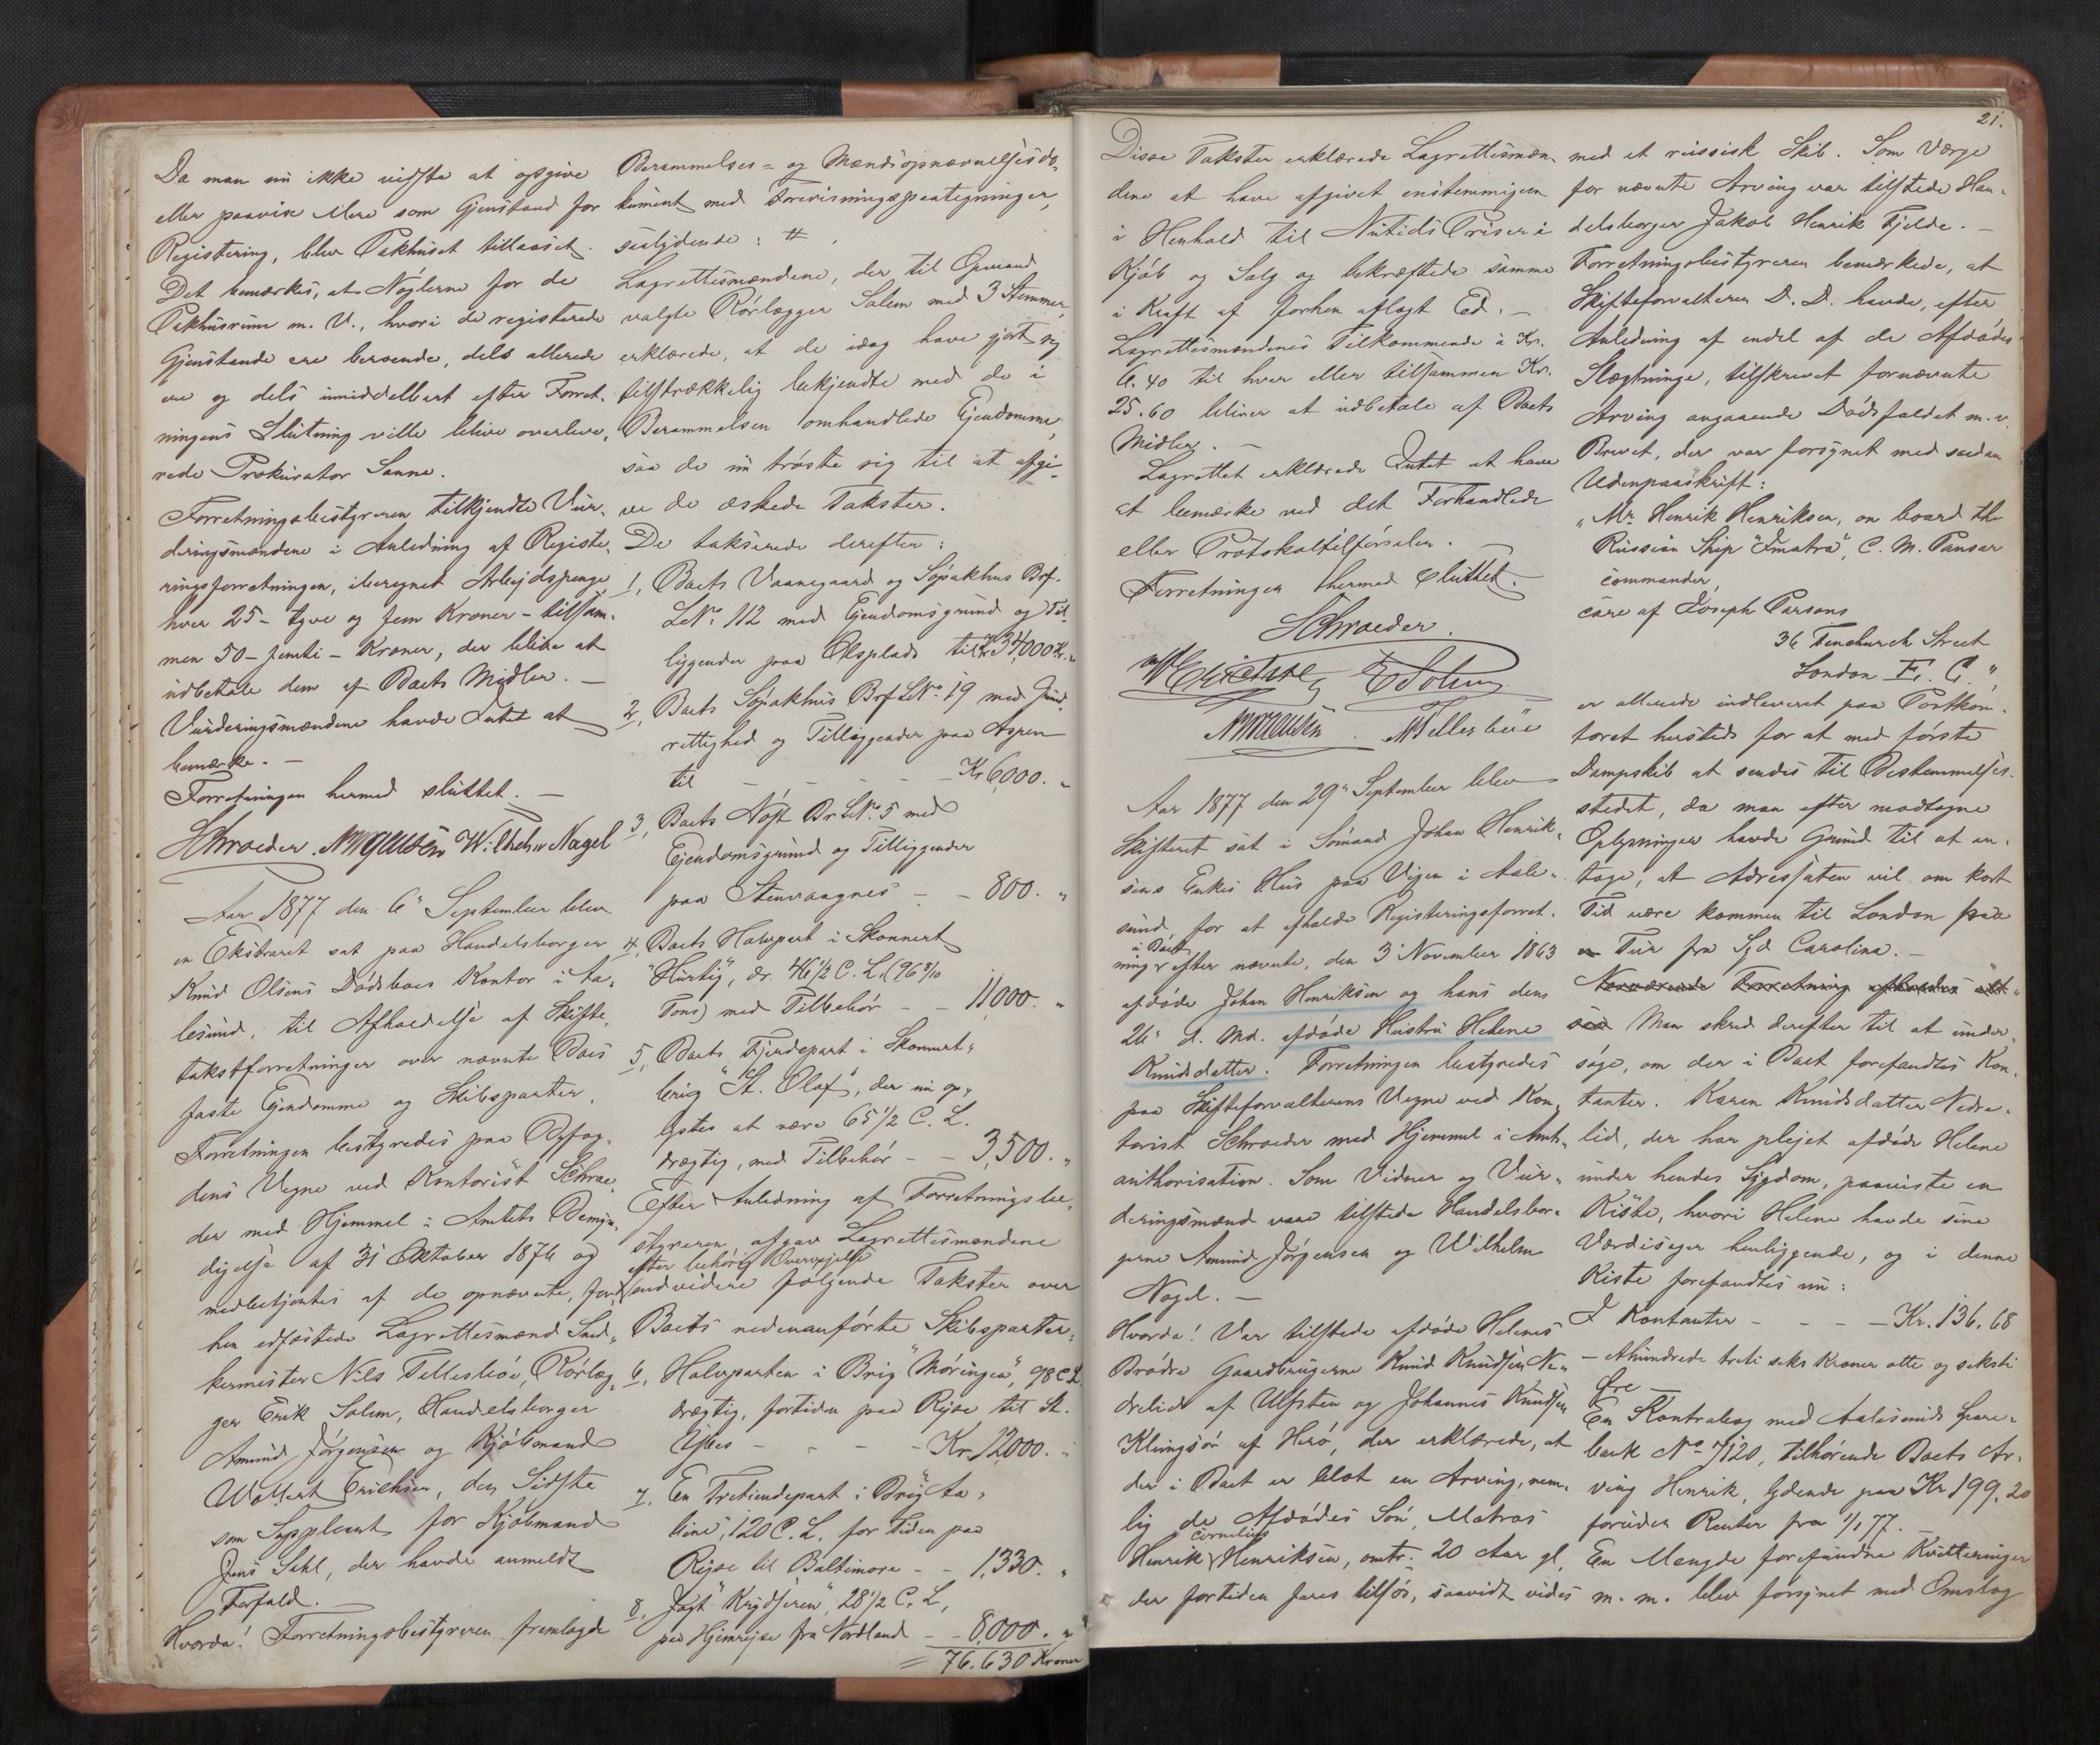 Da man nu ikke vidste at opgive
eller paavise Mere som Gjenstand for
Registering, blev Pakhuset tillaaset.
Det bemærkes, at Nøglerne for de
Pakhusrum m. V., hvori de registerede
Gjenstande ere beroende, dels allerede
ere og dels umiddelbart efter Forret-
ningens Slutning ville blive overleve-
rede Prokurator Sanne.
Forretningsbestyreren tilkjendte Vur-
deringsmændene i Anledning af Registe-
ringsforretningen, iberegnet Arbejdspenge
hver 25 - tyve og fem Kroner - tilsam-
men 50 - femti - Kroner, der blive at
udbetale dem af Boets Midler. -
Vurderingsmændene havde Intet at
bemærke. -
Forretningen hermed sluttet. -
Schroeder. Wilhelm Nagel
Aar 1877 den 6" September blev
en Ekstraret sat paa Handelsborger
Knud Olsens Dødsboes Kontor i Aa-
lesund, til Afholdelse af Skifte-
takstforretninger over nævnte Boes
faste Ejendomme og Skibsparter.
Forretningen bestyredes paa Byfog-
dens Vegne ved Kontorist Schroe-
der med Hjemmel i Amtets Bemyn-
digelse af 31 Oktober 1876 og
medbetjentes af de opnævnte, for-
hen edfæstede Lagrettesmænd Sned-
kermester Nils Tellesbøe, Rørlæg-
ger Erik Solem, Handelsborger
Amund Jørgensen og Kjøbmand
Wollert Erichsen, den Sidste
som Suppleant for Kjøbmand
Jens Dahl, der havde anmeldt
Forfald. -
Hvorda! Forretningsbestyreren fremlagde
Berammelses- og Mændsopnævnelsesdo-
kument med Forevisningspaategninger,
saalydende: #.
Lagrettesmændene, der til Opmand
valgte Rørlægger Solem med 3 Stemmer,
erklærede, at de idag have gjort sig
tilstrækkelig bekjendte med de i
Berammelsen omhandlede Ejendomme,
saa de nu trøste sig til at afgi-
ve de æskede Takster.
De takserede derefter:
1, Boets Vaanegaard og Søpakhus Brf.
LNo. 112 med Ejendomsgrund og Til-
liggender paa Oksplads til Kr 34,000 Kr. "
2, Boets Søpakhus Brf LNo. 19 med Grund-
rettighed og Tilliggender paa Aspen
til - - - - Kr 6,000. "
3, Boets Nøst Br LNo. 5 med
Ejendomsgrund og Tilliggender
paa Stenvaagnes - - 800. "
4, Boets Halvpart i Skonnert
"Hurtig", dr. 46 1/2 C. L. (96 8/10
Tons) med Tilbehør - - 11,000. "
5, Boets Fjerdepart i Skonnert-
brig "St. Olaf", der nu op-
lystes at være 65 1/2 C. L.
drægtig, med Tilbehør - - 3,500. "
Efter Anledning af Forretningsbe-
styreren afgav Lagrettesmændene
efter behørig Overvejelse
endvidere følgende Takster over
Boets nedenanførte Skibsparter:
6, Halvparten i Brig "Møringen", 98 C. L.
drægtig, fortiden paa Rejse til St.
Ybes - - - - Kr. 12000. "
7, En Trettiendepart i Brig "Aa-
line", 120 C. L. for Tiden paa
Rejse til Baltimore - - 1,330. "
8, Jagt "Krydseren", 28 1/2 C. L.,
paa Hjemrejse fra Nordland - - 8,000. "
= 76.630 Kroner
21.
Disse Takster erklærede Lagrettesmæn-
dene at have afgivet enstemmigen
i Henhold til Nutids Priser i
Kjøb og Salg og bekræftede samme
i Kraft af forhen aflagt Ed. -
Lagrettesmændenes Tilkommende à Kr.
6. 40 til hver eller tilsammen Kr.
25. 60 bliver at udbetale af Boets
Midler. -
Lagrettet erklærede Intet at have
at bemærke ved det Forhandlede
eller Protokoltilførselen. -
Forretningen hermed sluttet. -
Schroeder.
W Erichsen E Solem
N Tellesbøe
Aar 1877 den 29" September blev
Skifteret sat i Sømand Johan Henrik-
sens Enkes Hus paa Vigen i Aale-
sund for at afholde Registeringsforret-
i Boet
ning efter nævnte, den 3 November 1863
afdøde Johan Henriksen og hans den
26" d. Md. afdøde Hustru Helene
Knudsdatter. Forretningen bestyredes
paa Skifteforvalterens Vegne ved Kon-
torist Schroeder med Hjemmel i Amts-
authorisation. Som Vidner og Vur-
deringsmænd vare tilstede Handelsbor-
gerne Amund Jørgensen og Wilhelm
Nagel. -
Hvorda! Var tilstede afdøde Helenes
Brødre Gaardbrugerne Knud Knudsen Ne-
drelid af Ulfsten og Johannes Knudsen
Klungsør af Herø, der erklærede, at
der i Boet er blot en Arving, nem-
lig de Afdødes Søn, Matros
Cornelius
Henrik Henriksen, omtr. 20 Aar gl,
der fortiden fares tilsøs, saavidt vides
med et russisk Skib. Som Værge
for nævnte Arving var tilstede Han-
delsborger Jakob Henrik Fjelde. -
Forretningsbestyreren bemærkede, at
Skifteforvalteren D. D. havde, efter
Anledning af endel af de Afdødes
Slægtninge, tilskrevet fornævnte
Arving angaaende Dødsfaldet m. v.
Brevet, der var forsynet med saadan
Udenpaaskrift:
"Mr. Henrik Henriksen, on board the
Russian Ship "Imatra", C. M. Pansar
commander,
care af Joseph Parsons
36 Fenchurch Street
London E. C.",
er allerede indleveret paa Postkon-
toret hersteds for at med første
Dampskib at sendes til Bestemmelses-
stedet, da man efter modtagne
Oplysninger havde Grund til at an-
tage, at Adressaten vil om kort
Tid være kommen til London paa
en Tur fra Syd Carolina. -
Nærværende Forretning afholdes alt-
saa Man skred derefter til at under-
søge, om der i Boet forefandtes Kon-
tanter. Karen Knudsdatter Nedre-
lid, der har plejet afdøde Helene
under hendes Sygdom, paaviste en
Kiste, hvori Helene havde sine
Værdisager henliggende, og i denne
Kiste forefandtes nu:
I Kontanter - - - - Kr. 136, 68
- Ethundrede treti seks Kroner otte og seksti
Øre -
En Kontrabog med Aalesunds Spare-
bank No 7120, tilhørende Boets Ar-
ving Henrik, lydende paa Kr 199. 20
foruden Renter fra 1/1 77. -
En Mængde forefundne Kvitteringer
m. m. blev forsynet med Omslag